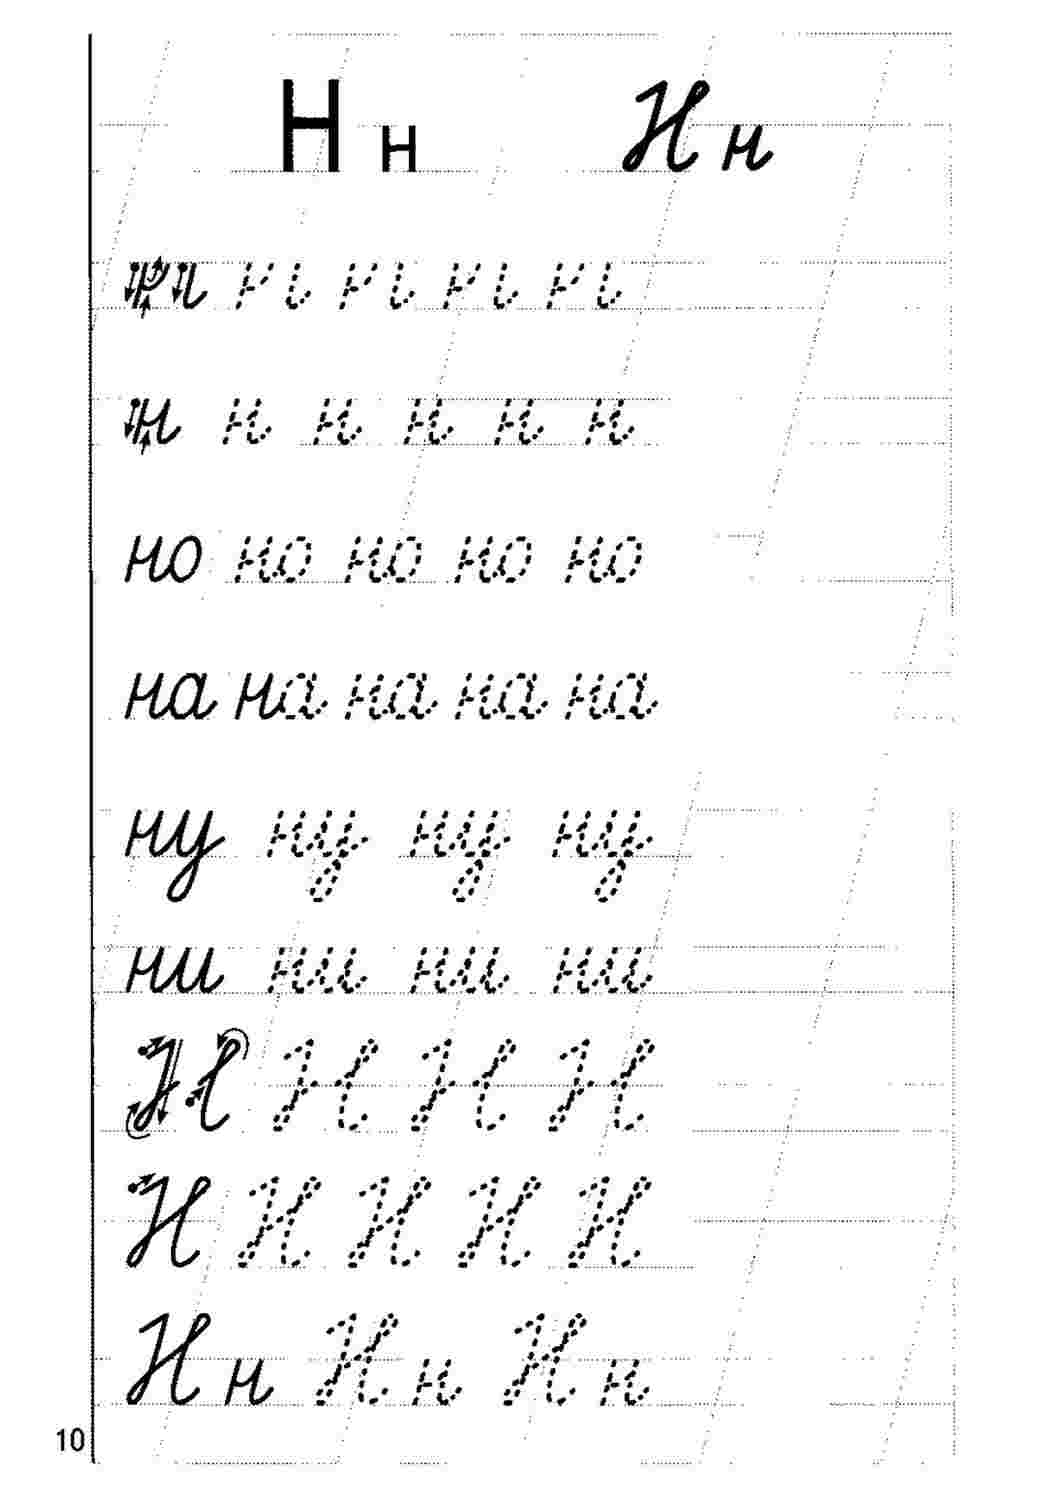 Н н Н н
н н н н н н
но но но но но
на на на на на
ну ну ну ну
ни ни ни ни
Н Н Н Н
Н Н Н Н Н
Н н Н н Н н
10